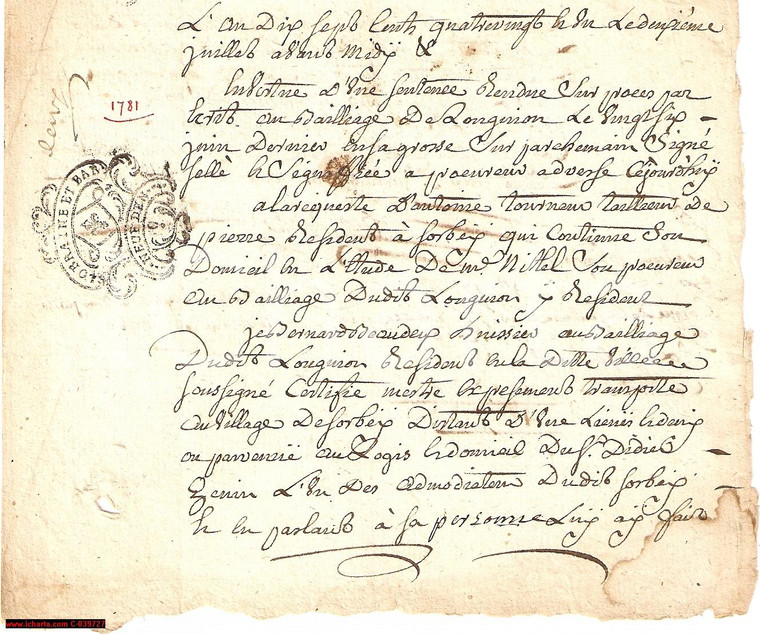 L'an Dix sept Cents quatrevingt et un Le deuxième
juillet avant Midÿ &
En Vertue D'une sentence Rendue Sur proces par
Ecrit au Bailliage De Longuion Le vingt six
juin Dernier En sa grosse Sur parchemain Signé
sellé et Signiffiée a procureur adverse Cejourd'huÿ
1781
a la requeste d'antoine tourneur tailleur de
pierre Resident à Sorbeÿ qui Continue Son
Domicil En L'Etude De me Nittel Son procureur
au Bailliage Dudit Longuion ÿ Resident
LORRAINE ET BAR
je Bernard Beaudeux huissier au Bailliage
Dudit Longuion Resident En la Ditte ville
soussigné Certifie mestre Expressement transporté
au Village De Sorbeÿ Distant D'une Lieüe et demÿ
ou parvenüe au Logis et domicil Du Sr. Didier
L'un Des admodiateurs Dudit Sorbeÿ
et en parlant à sa personne Luÿ aÿ fait
www.icharta.com C-039727